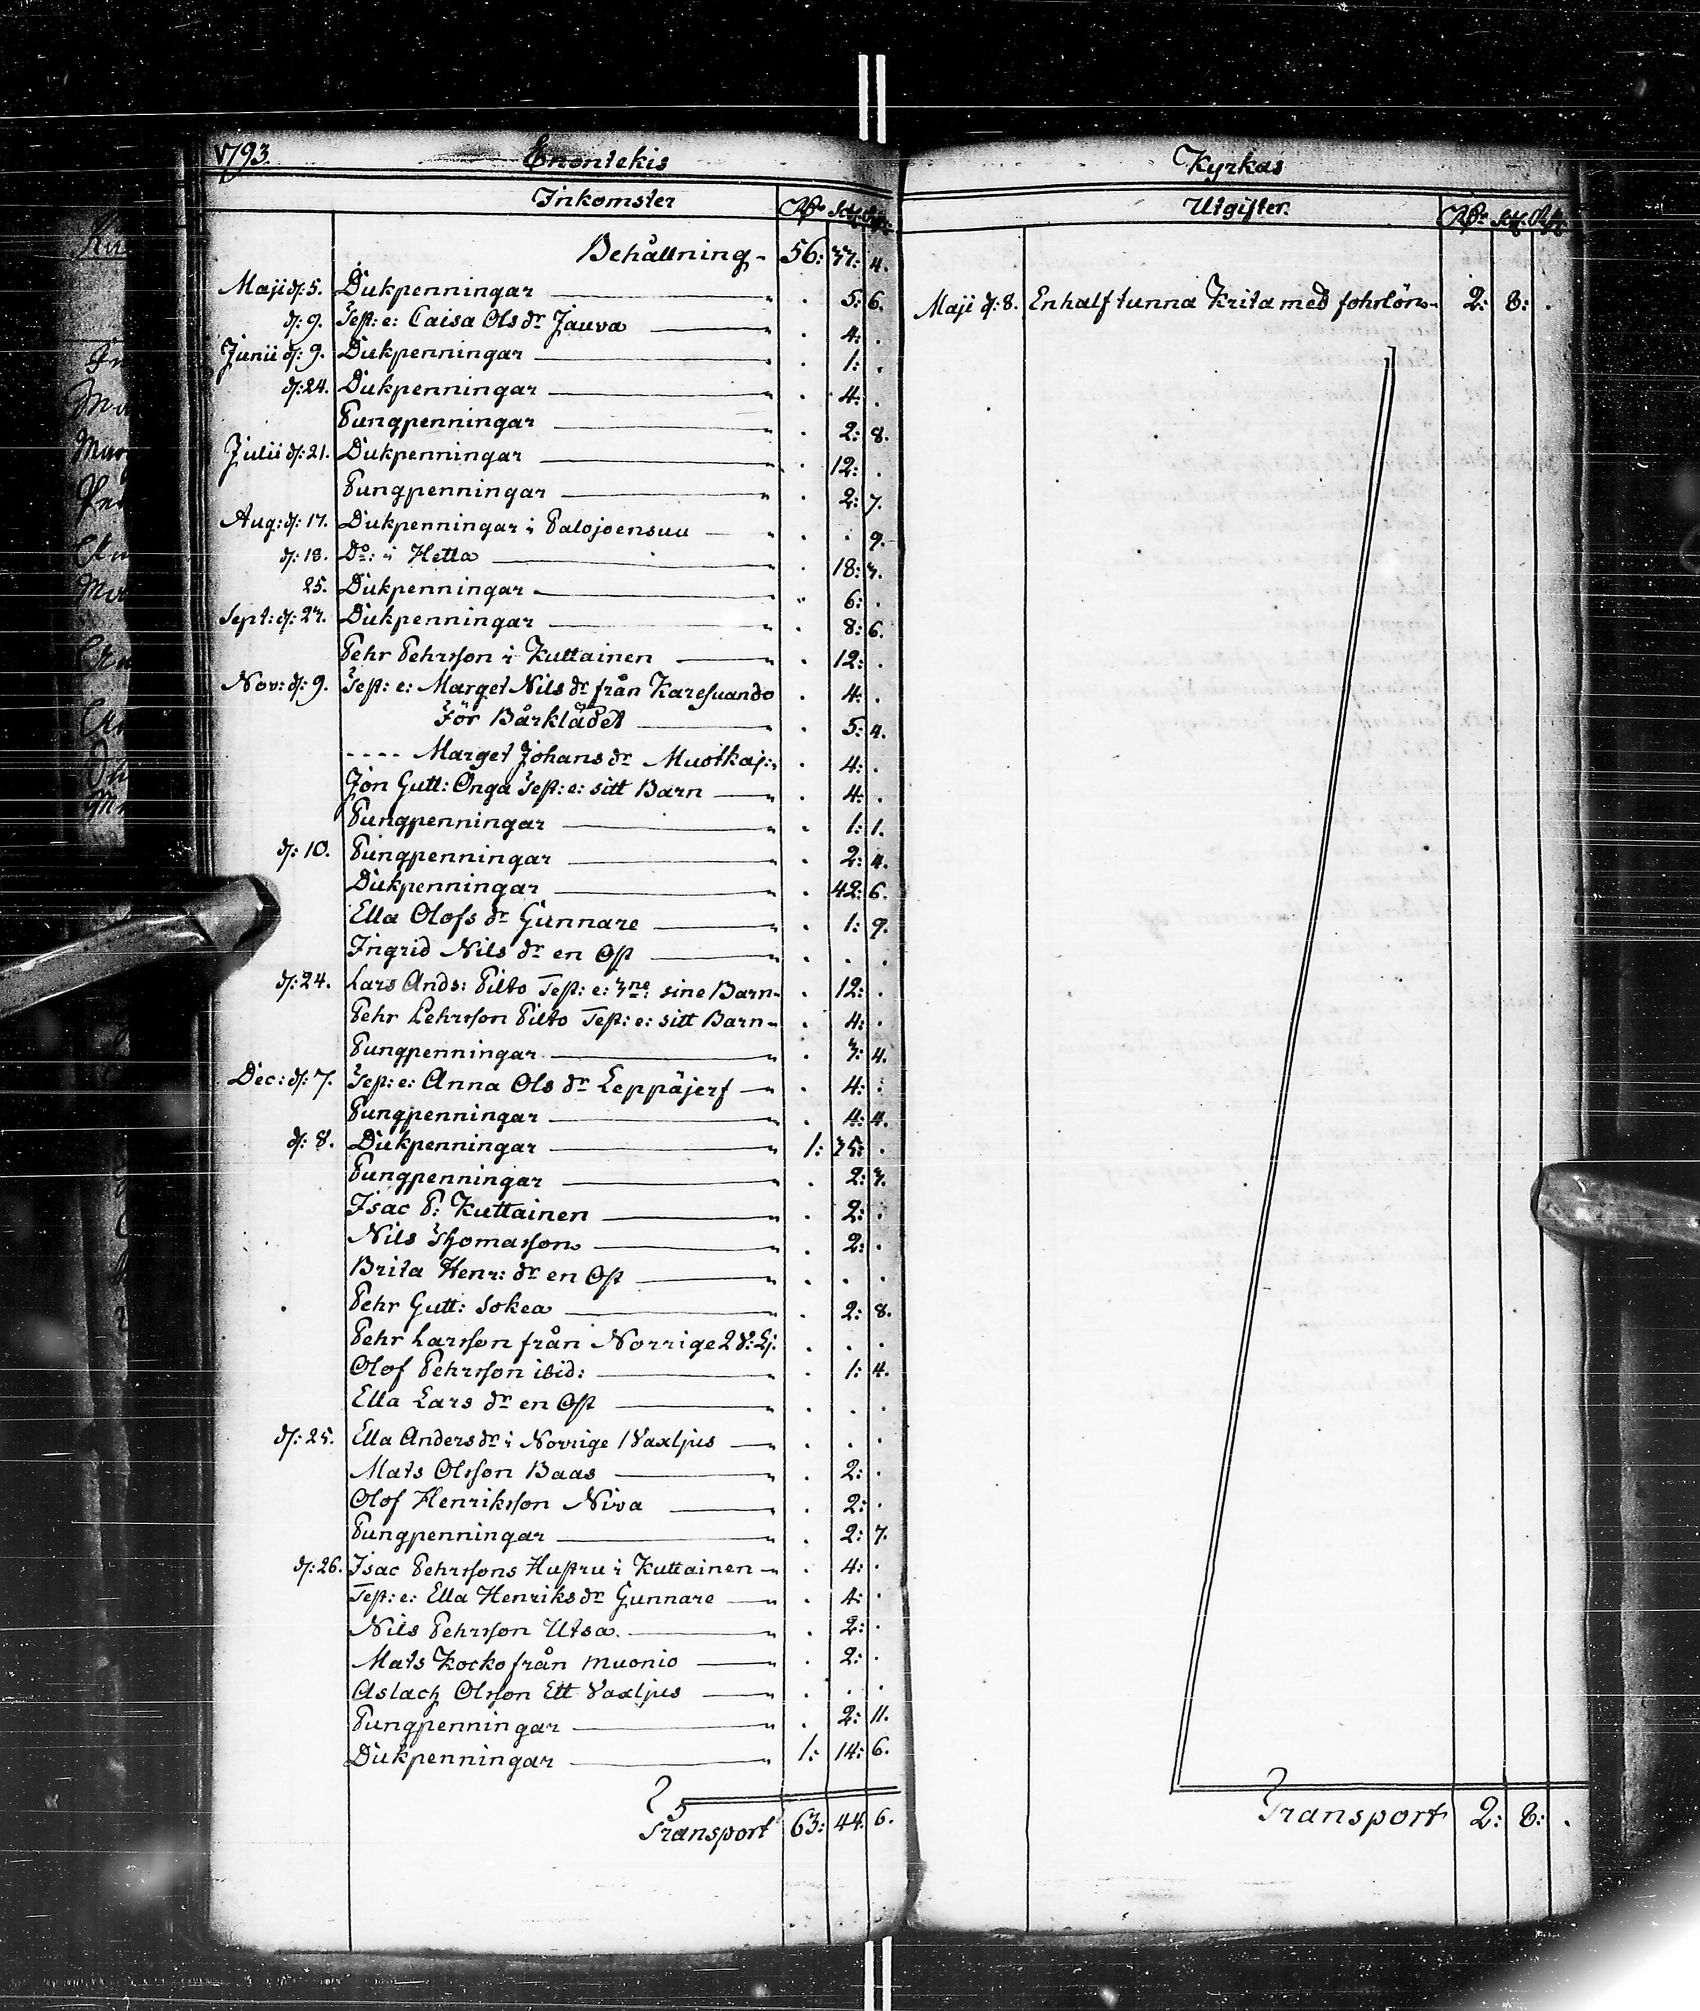 1793. Enontekis
Inkomster Rdr Sk. Rst.
Behållning - 56: 37: 4.
Maji d: 5. Dukpenningar - . 5: 6.
d: 9. Test: e: Caisa Ols dr Jauva - . 4: .
Junii d: 9. Dukpenningar - . 1: .
d: 24. Dukpenningar - . 4: .
Pungpenningar - . 2: 8.
Julii d: 21. Dukpenningar - . 12: .
Pungpenningar - . 2: 7.
Aug: d: 17. Dukpenningar i Palojoensuu - . . 9.
d: 18. Do: i Hetta - . 18: 3.
25. Dukpenningar - . 6: .
Sept: d: 27. Dukpenningar - . 8: 6.
Pehr Pehrsson i Kuttainen - . 12: .
Nov: d: 9. Test: e: Marget Nils dr från Karesuando . 4: .
För Bårklädet - . 5: 4.
---- Marget Johans dr Muotkaj: . 4: .
Jon Gutt: Onga Test: e: sitt Barn - . 4: .
Pungpenningar - . 1: 1.
d: 10. Pungpenningar - . 2: 4.
Dukpenningar - . 42: 6.
Ella Olofs dr Gunnare - . 1: 9.
Ingrid Nils dr en Ost - . . .
d: 24. Lars Ands: Pilto Test: e: 3ne: sine Barn - . 12: .
Pehr Pehrsson Pilto Test: e: sitt Barn - . 4: .
Pungpenningar - . 3: 4.
Dec: d: 7. Test: e: Anna Ols dr Leppäjerf - . 4: .
Pungpenningar - . 4: 4.
d: 8. Dukpenningar - 1: 35: .
Pungpenningar - . 2: 3.
Isac P: Kuttainen - . 2: .
Nils Thomasson - . 2: .
Brita Henr: dr en Ost - . . .
Pehr Gutt: Sokea - . 2: 8.
Pehr Larsson från Norrige 2 . . .
Olof Pehrsson ibid: - . 1: 4.
Ella Lars dr en Ost - . . .
d: 25. Ella Anders dr i Norrige 1 Vaxljus - . . .
Mats Olsson Baas - . 2: .
Olof Henriksson Niva - . 2: .
Pungpenningar - . 2: 7.
d: 26. Isac Pehrssons Hustru i Kuttainen - . 4: .
Test: e: Ella Henriks dr Gunnare - . 4: .
Nils Pehrsson Utsa. - . 2: .
Mats Kocko från Muonio - . 2: .
Aslach Olsson Ett Vaxljus - . . .
Pungpenningar - . 2: 11.
Dukpenningar - 1: 14: 6.
Transport 63: 44: 6.
Kyrkas
Utgifter. Rdr Sk. Rst.
Maji d: 8. En half tunna Krita med fohrlön - 2: 8: .
Transport 2: 8: .